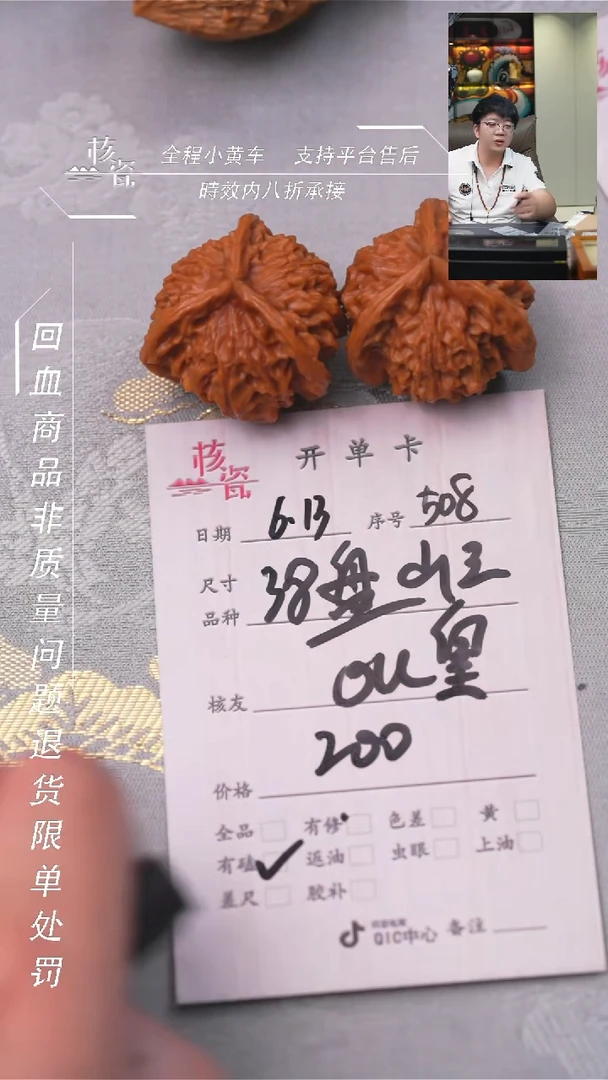 核瓷
全程小黄车 支持平台售后
時效内八折承接
回血商品非质量问题退货限单处罚
核瓷
开单卡
日期 6.13 序号 508
尺寸
品种 38盘山王
核友 OU皇
价格 200
全品 有修 色差 黄
有磕 ✓ 返油 虫眼 上油
差尺 胶补
QIC中心 备注